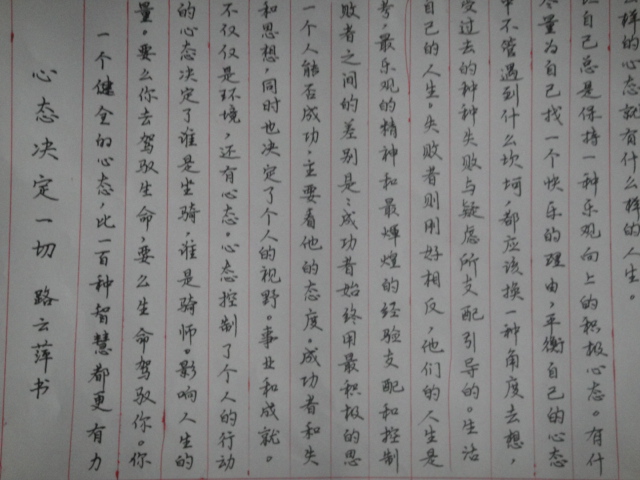 心态决定一切 路云萍书
一个健全的心态，比一百种智慧都更有力
量。要么你去驾驭生命，要么生命驾驭你。你
的心态决定了谁是坐骑，谁是骑师。影响人生的
不仅仅是环境，还有心态。心态控制了个人的行动
和思想，同时也决定了个人的视野。事业和成就。
一个人能否成功，主要看他的态度。成功者和失
败者之间的差别是：成功者始终用最积极的思
考，最乐观的精神和最辉煌的经验支配和控制
自己的人生。失败者则刚好相反，他们的人生是
受过去的种种失败与疑虑所支配引导的。生活
中不管遇到什么坎坷，都应该换一种角度去想，
尽量为自己找一个快乐的理由，平衡自己的心态
让自己总是保持一种乐观向上的积极心态。有什
么样的心态就有什么样的人生。